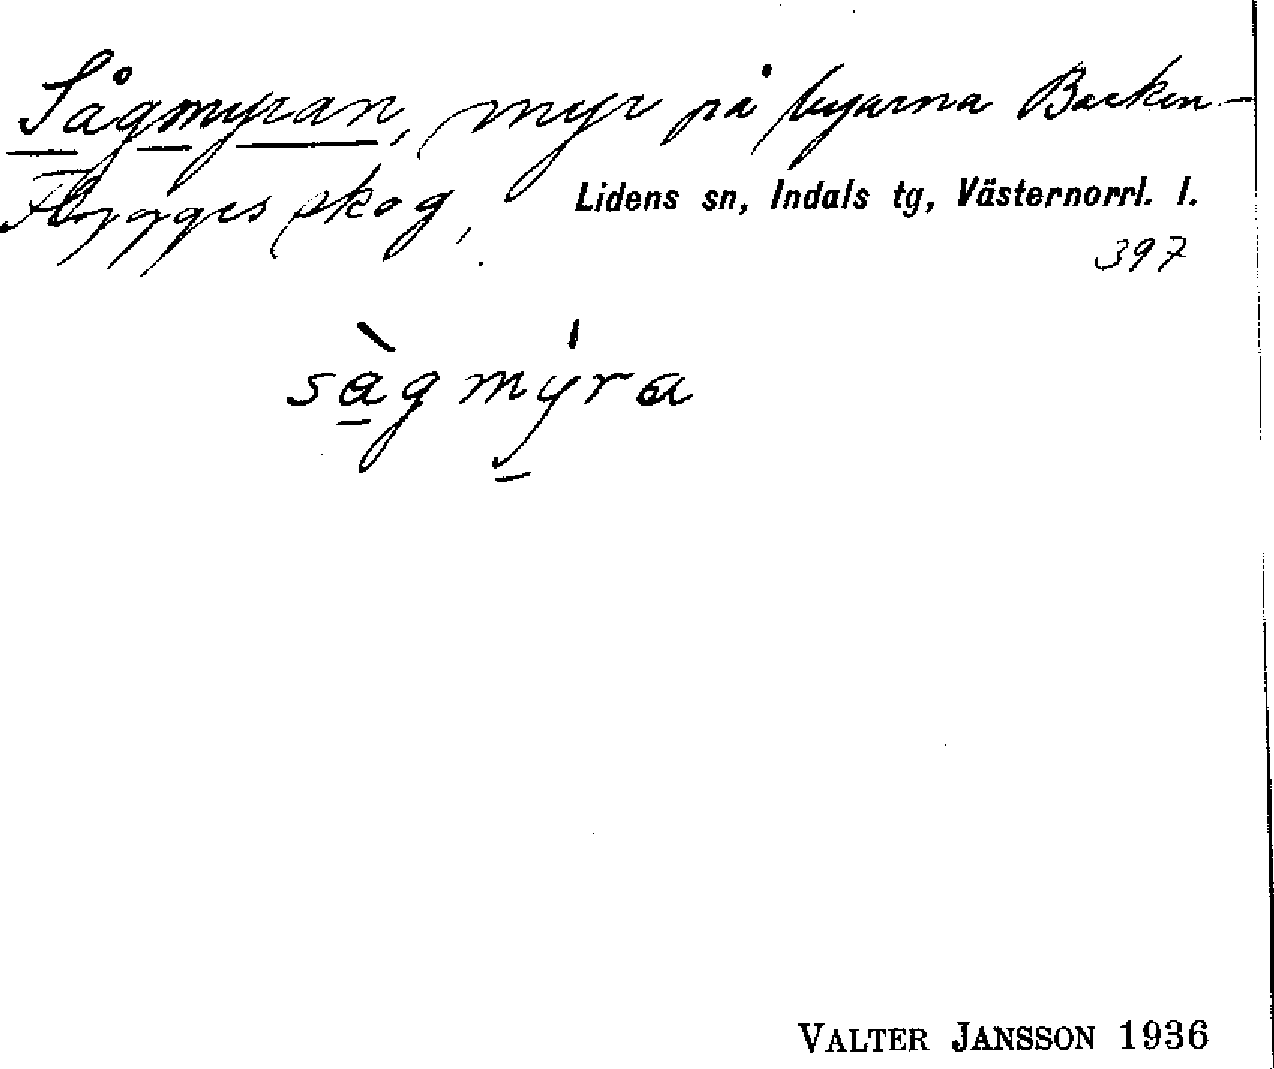 Sågmyran, myr på byarna Backen-
Flygges skog, Lidens sn, Indals tg, Västernorrl. l.
397
sàgmýra
VALTER JANSSON 1936